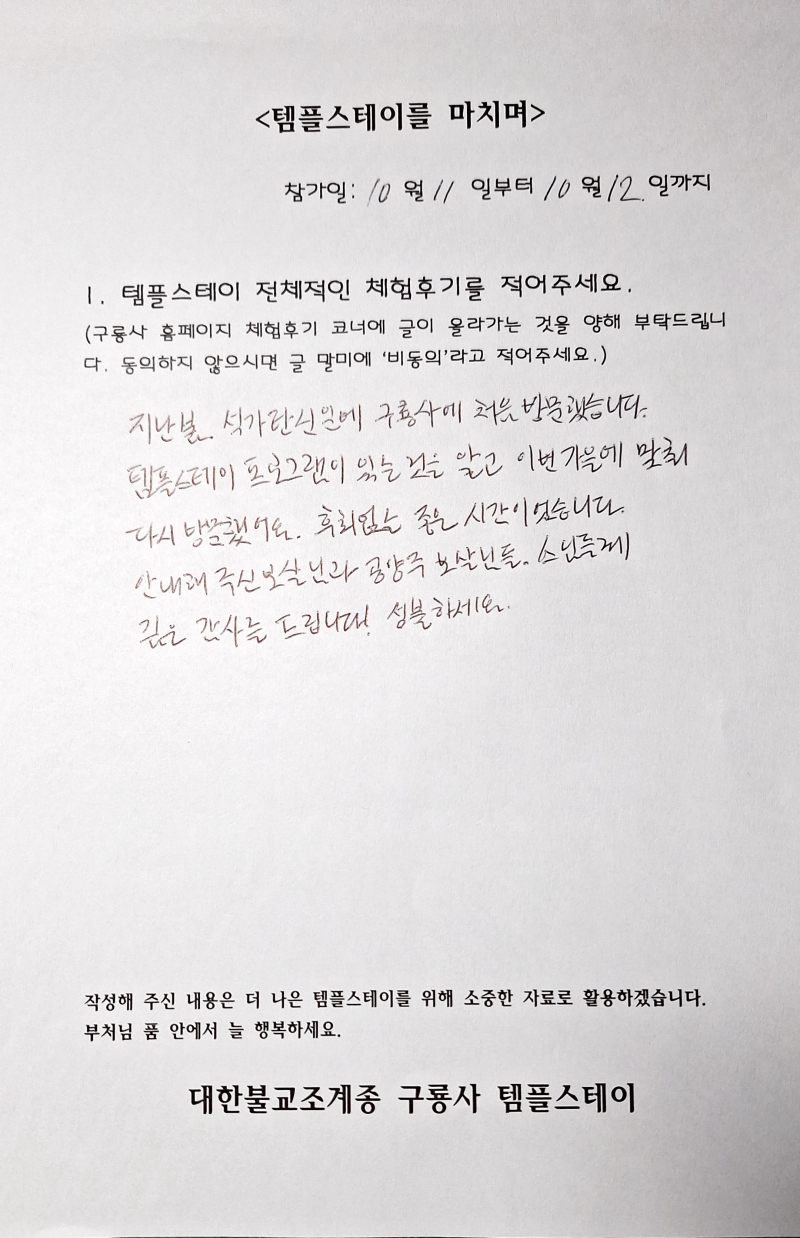 <템플스테이를 마치며>
참가일: 10 월 11 일부터 10 월 12 일까지
1. 템플스테이 전체적인 체험후기를 적어주세요.
(구룡사 홈페이지 체험후기 코너에 글이 올라가는 것을 양해 부탁드립니
다. 동의하지 않으시면 글 말미에 '비동의'라고 적어주세요.)
지난봄, 석가탄신일에 구룡사에 처음 방문했습니다.
템플스테이 프로그램이 있는 것을 알고 이번 가을에 맞춰
다시 방문했어요. 후회없는 좋은 시간이었습니다.
안내해 주신 보살님과 공양주 보살님들, 스님들께
깊은 감사를 드립니다! 성불하세요.
작성해 주신 내용은 더 나은 템플스테이를 위해 소중한 자료로 활용하겠습니다.
부처님 품 안에서 늘 행복하세요.
대한불교조계종 구룡사 템플스테이